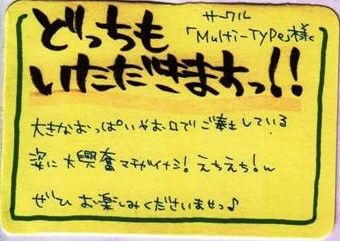 サークル
「Multi-Type」様
どっちも
いただきますっ!!
大きなおっぱいやお口でご奉仕している
姿に大興奮マチガイナシ!えちえち!!
ぜひお楽しみくださいませっ♪